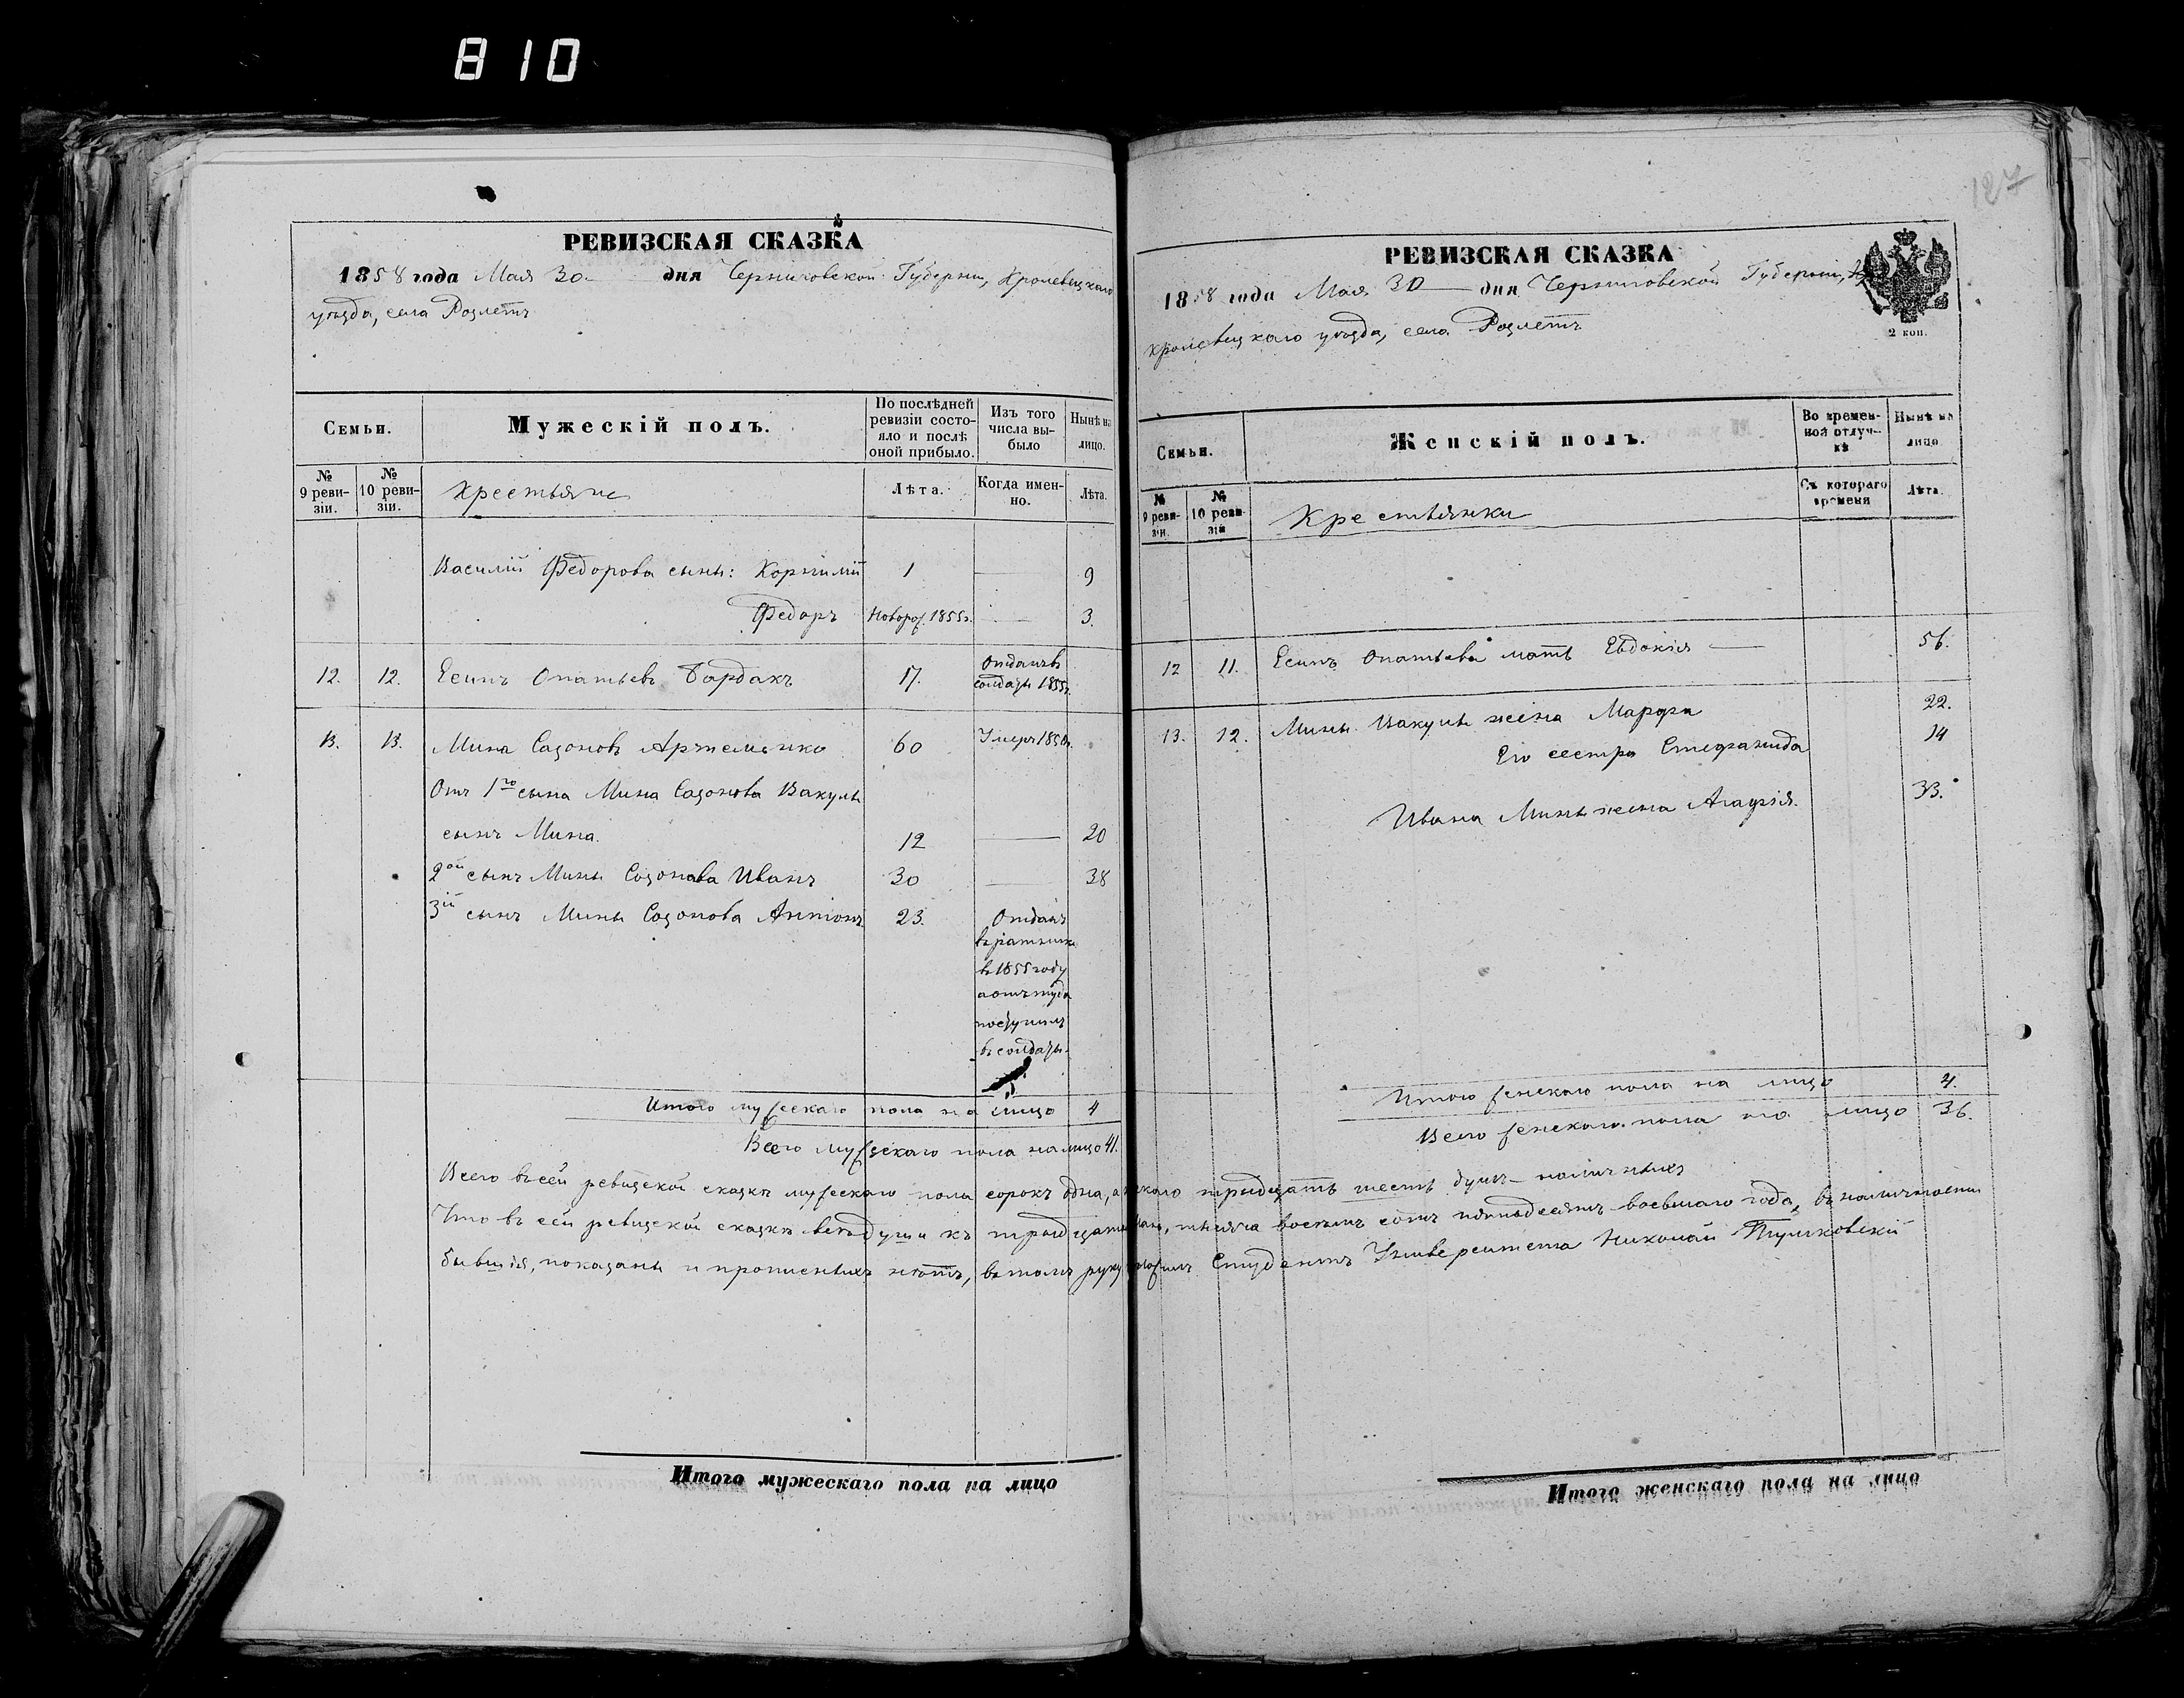 810
127
РЕВИЗСКАЯ СКАЗКА
1858 года Мая 30 дня Черниговской Губерніи, Кролевецкаго
уѣзда, села Розлетъ
Семьи.
Мужескій полъ.
По послѣдней ревизіи состояло и послѣ оной прибыло.
Изъ того числа выбыло
Нынѣ на лицо.
№ 9 ревизіи.
№ 10 ревизіи.
Крестьяне
Лѣта.
Когда именно.
Лѣта.
Василій Федорова сыны: Корнилій 1 9
Федоръ Новорож. 1855г. 3.
12. 12. Есипъ Опатьевъ Бардакъ 17. Отданъ въ солдаты 1855г.
13. 13. Мина Сазоновъ Артеменко 60 Умеръ 1850г.
Отъ 1го сына Мина Сазонова Вакулы
сынъ Мина. 12 20
2ой сынъ Мины Сазонова Иванъ 30 38
3ій сынъ Мины Сазонова Антонъ 23. Отданъ
въ ратники
въ 1855 году
а отъ туда
поступилъ
въ солдаты.
Итого мужескаго пола на лицо 4
Всего мужескаго пола на лицо 41.
РЕВИЗСКАЯ СКАЗКА
2 коп.
1858 года Мая 30 дня Черниговской Губерніи,
Кролевецкаго уѣзда, села Розлетъ
Семьи.
Женскій полъ.
Во временной отлучкѣ
Нынѣ на лицо.
№ 9 ревизіи.
№ 10 ревизіи
Крестьянки
Съ котораго времени
Лѣта.
12 11. Есипъ Опатьева мать Евдокія 56.
13. 12. Мины Вакулы жена Марфа 22.
Его сестра Стефанида 14
Ивана Мины жена Агафія. 33.
Итого женскаго пола на лицо 4.
Всего женскаго пола на лицо 36.
Всего въ сей ревизской сказкѣ мужескаго пола сорокъ одна, а женскаго тридцать шесть душъ наличныхъ
Что въ сей ревизской сказкѣ всѣ души къ тридцатому мая, тысяча восемь сотъ пятьдесятъ восьмаго года, въ наличности
бывшія, показаны и прописныхъ нѣтъ, въ томъ руку приложилъ Студентъ Университета Николай
Итого мужескаго пола на лицо
Итого женскаго пола на лицо